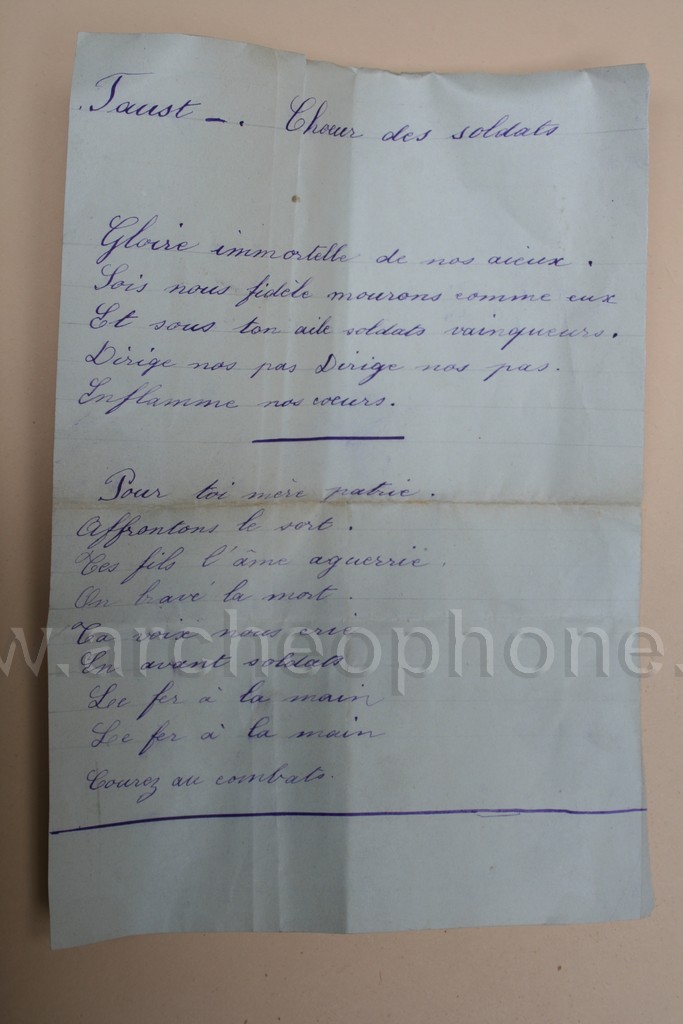 Faust -. Choeur des soldats
Gloire immortelle de nos aieux.
Sois nous fidèle mourons comme eux
Et sous ton aile soldats vainqueurs.
Dirige nos pas Dirige nos pas.
Enflamme nos coeurs.
Pour toi mère patrie.
Affrontons le sort.
Tes fils l'âme aguerrie.
On bravé la mort.
Ta voix nous crie
www.archeophone.
En avant soldats
Le fer à la main
Le fer à la main
Courez au combats.